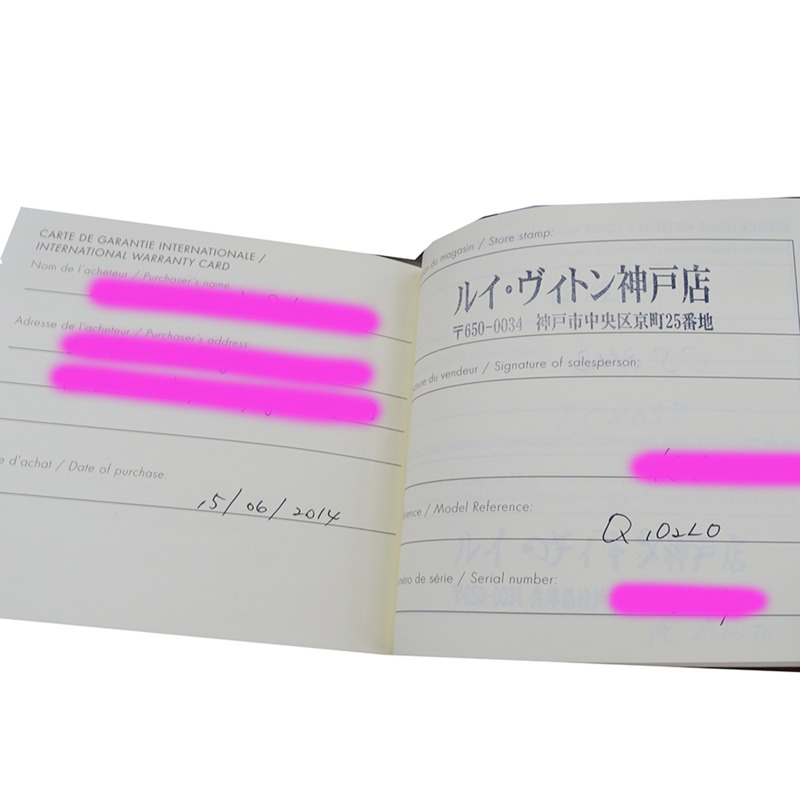 CARTE DE GARANTIE INTERNATIONALE /
INTERNATIONAL WARRANTY CARD
Nom de l'acheteur / Purchaser's name
Adresse de l'acheteur / Purchaser's address
e d'achat / Date of purchase:
15/06/2014
du magasin / Store stamp:
ルイ・ヴィトン神戸店
〒650-0034 神戸市中央区京町25番地
du vendeur / Signature of salesperson:
/ Model Reference:
Q102L0
de série / Serial number: